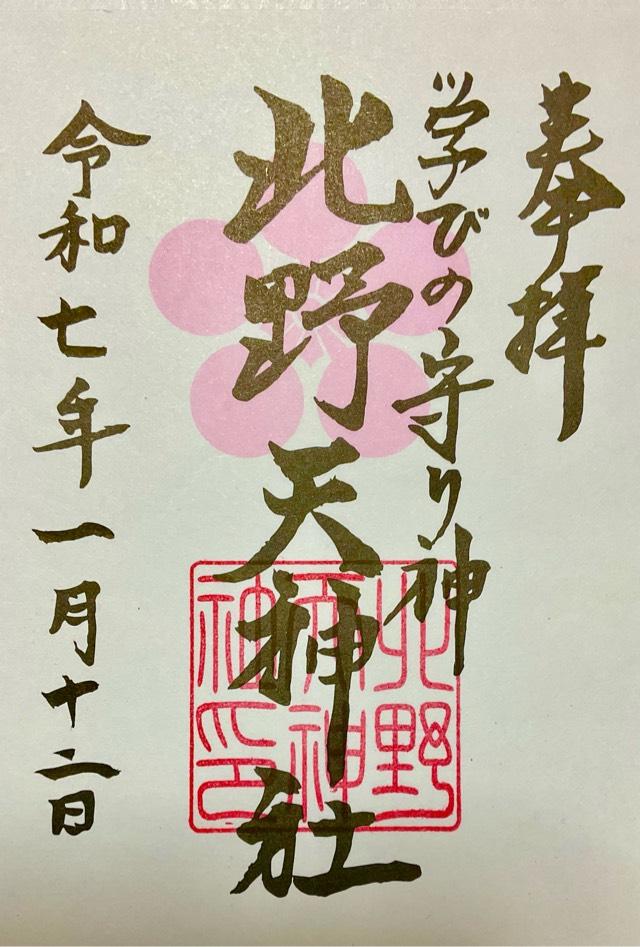 奉拝
学びの守り神
北野天神社
令和七年一月十二日
北野
天神
社印